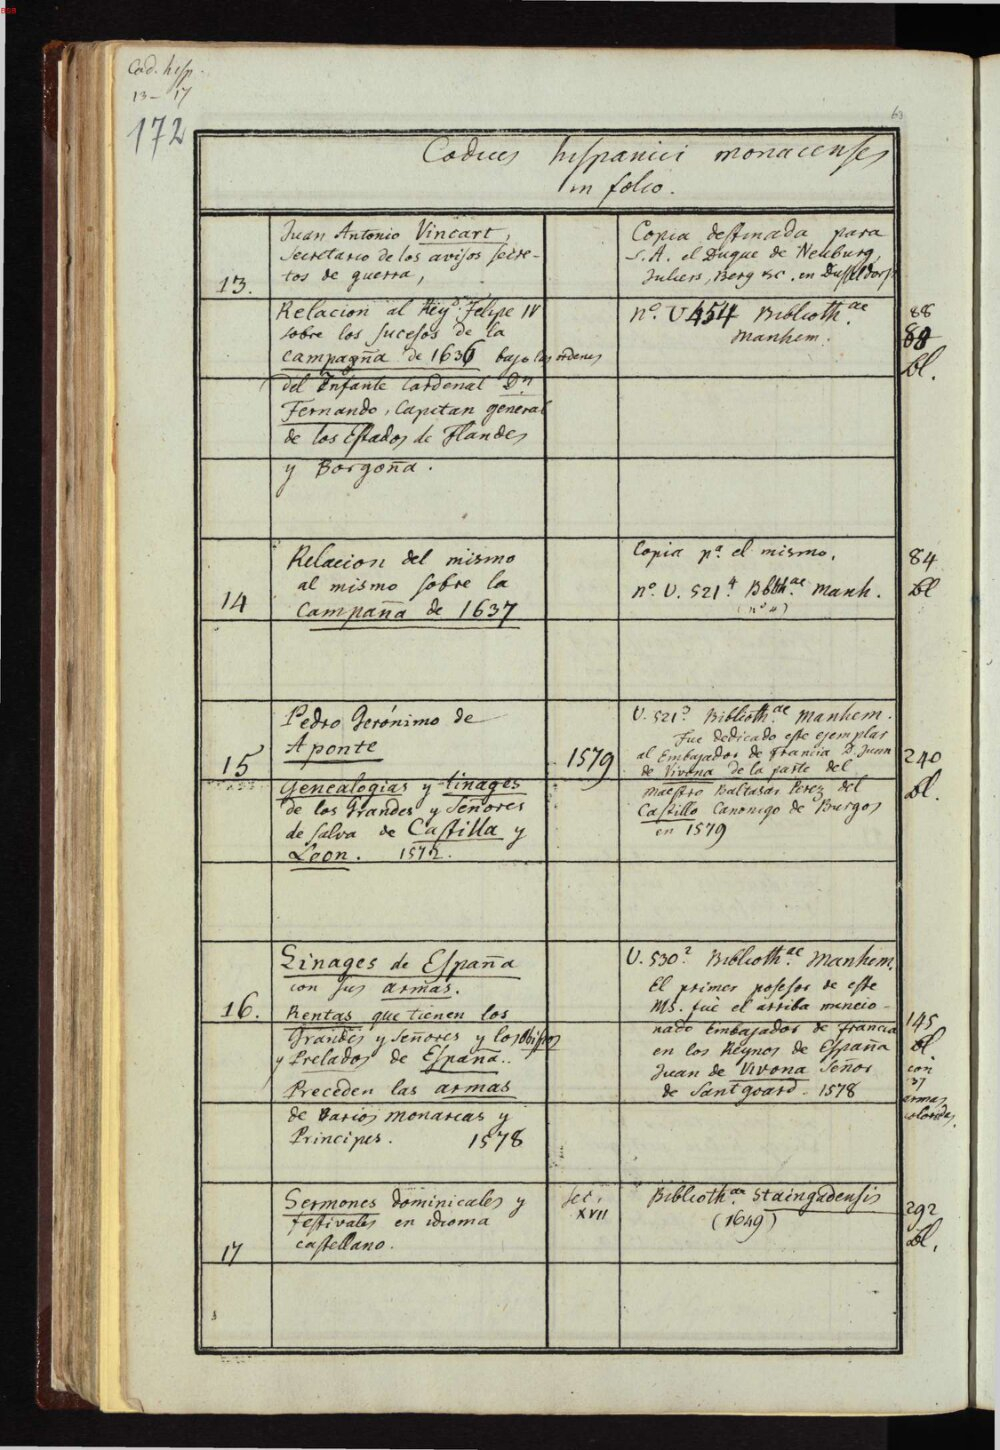 BSB
Cod. hisp.
13 - 17
172
63
Codices hispanici monacenses
in folio.
13.
Juan Antonio Vincart,
Secretario de los avisos secre-
tos de guerra,
Relacion al Rey Dº. Felipe IV
sobre los sucesos de la
campagña de 1636 bajo las ordenes
del Infante Cardenal Dn
Fernando, Capitan general
de los Estados de Flandes
y Borgoña.
Copia destinada para
S. A. el Duque de Neuburg,
Juliers, Berg &c. en Dusseldorf
nº. U 454 Biblioth.ae
Manhem.
88
88
bl.
14
Relacion del mismo
al mismo sobre la
Campaña de 1637
Copia pa. el mismo.
nº. U. 521.4 Bibth.ae Manh.
(nº 4)
84
bl
15
Pedro Gerónimo de
Aponte
Genealogias y linages
de los Grandes y Señores
de salva de Castilla y
Leon. 1572.
1579
U. 521.3 Biblioth.ae Manhem.
Fue dedicado este ejemplar
al Embajador de Francia D. Juan
de Vivona de la parte del
Maestro Baltasar Perez del
Castillo Canonigo de Burgos
en 1579
240
bl.
16.
Linages de España
con sus armas.
Rentas que tienen los
Grandes y Señores y los Obispos
y Prelados de España..
Preceden las armas
de Varios monarcas y
Principes. 1578
U. 530.2 Biblioth.ae Manhem.
El primer posesor de este
Ms. fuè el arriba mencio-
nado Embajador de Francia
en los Reynos de España
Juan de Vivona Señor
de Santgoard. 1578
145
bl
con
37
armas
coloridas.
17
Sermones dominicales y
festivales en idioma
castellano.
sec.
XVII
Biblioth.ae Staingadensis
(1649)
292
bl.